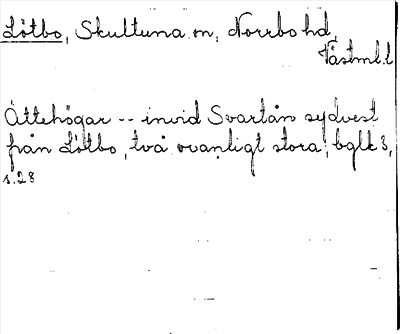 Lötbo, Skultuna sn, Norrbo hd,
Västml.l
Ättehögar -- invid Svartån sydvest
från Lötbo, två ovanligt stora; bglk 3,
s.28